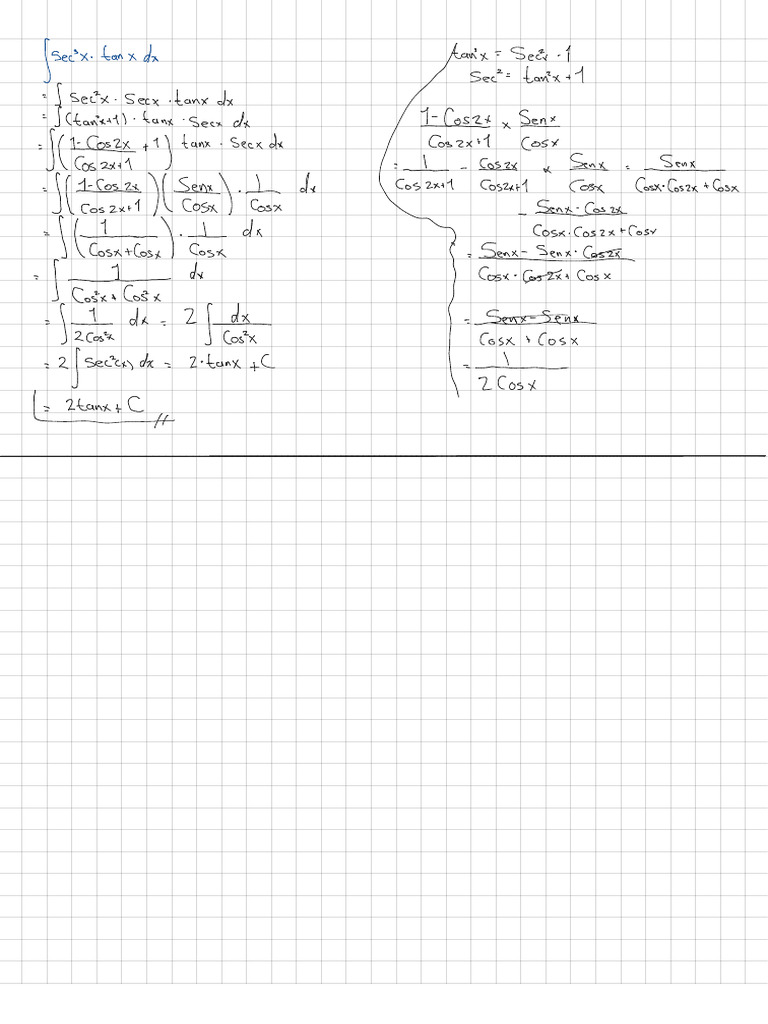 ∫ Sec³x · tan x dx
= ∫ Sec²x · Secx · tanx dx
= ∫ (tan²x+1) · tanx · Secx dx
= ∫ ( (1-Cos2x)/(Cos2x+1) + 1 ) tanx · Secx dx
= ∫ ( (1-Cos2x)/(Cos2x+1) ) ( Senx/Cosx ) · 1/Cosx dx
= ∫ ( 1/(Cosx+Cosx) ) · 1/Cosx dx
= ∫ 1/(Cos²x + Cos²x) dx
= ∫ 1/(2Cos²x) dx = 2 ∫ dx/(Cos²x)
= 2 ∫ Sec²(x) dx = 2·tanx + C
= 2tanx + C //
tan²x = Sec²x · 1
Sec² = tan²x + 1
(1-Cos2x)/(Cos2x+1) × Senx/Cosx
= 1/(Cos2x+1) - Cos2x/(Cos2x+1) × Senx/Cosx = Senx/(Cosx·Cos2x + Cosx)
- (Senx·Cos2x)/(Cosx·Cos2x + Cosx)
= (Senx - Senx·Cos2x)/(Cosx·Cos2x + Cosx)
= (Senx - Senx)/(Cosx + Cosx)
= 1/(2Cosx)